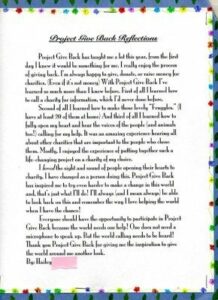 Project Give Back Reflections
Project Give Back has taught me a lot this year, from the first
day I knew it would be something for me. I really enjoy the process
of giving back. I'm always happy to give, donate, or raise money for
charities. (Even if it's not money) With Project Give Back I've
learned so much more than I knew before. First of all I learned how
to call a charity for information, which I'd never done before.
Second of all I learned how to make those lovely, "Fuzzies." (I
have at least 20 of them at home) And third of all I learned how to
fully open my heart and hear the voices of the people (and animals
too!) calling for my help. It was an amazing experience hearing all
about other charities that are important to the people who chose
them. Mostly, I enjoyed the experience of putting together such a
life-changing project on a charity of my choice.
I loved the sight and sound of people opening their hearts to
charity. I have changed as a person doing this. Project Give Back
has inspired me to try even harder to make a change in this world
and, that's just what I'll do! I'll always (and I mean always) be able
to look back on this and remember the way I love helping the world
when I have the chance!
Everyone should have the opportunity to participate in Project
Give Back because the world needs our help! One does not need a
microphone to speak up. But the world calling needs to be heard!
Thank you Project Give Back for giving me the inspiration to give
the world around me another look.
By: Hailey